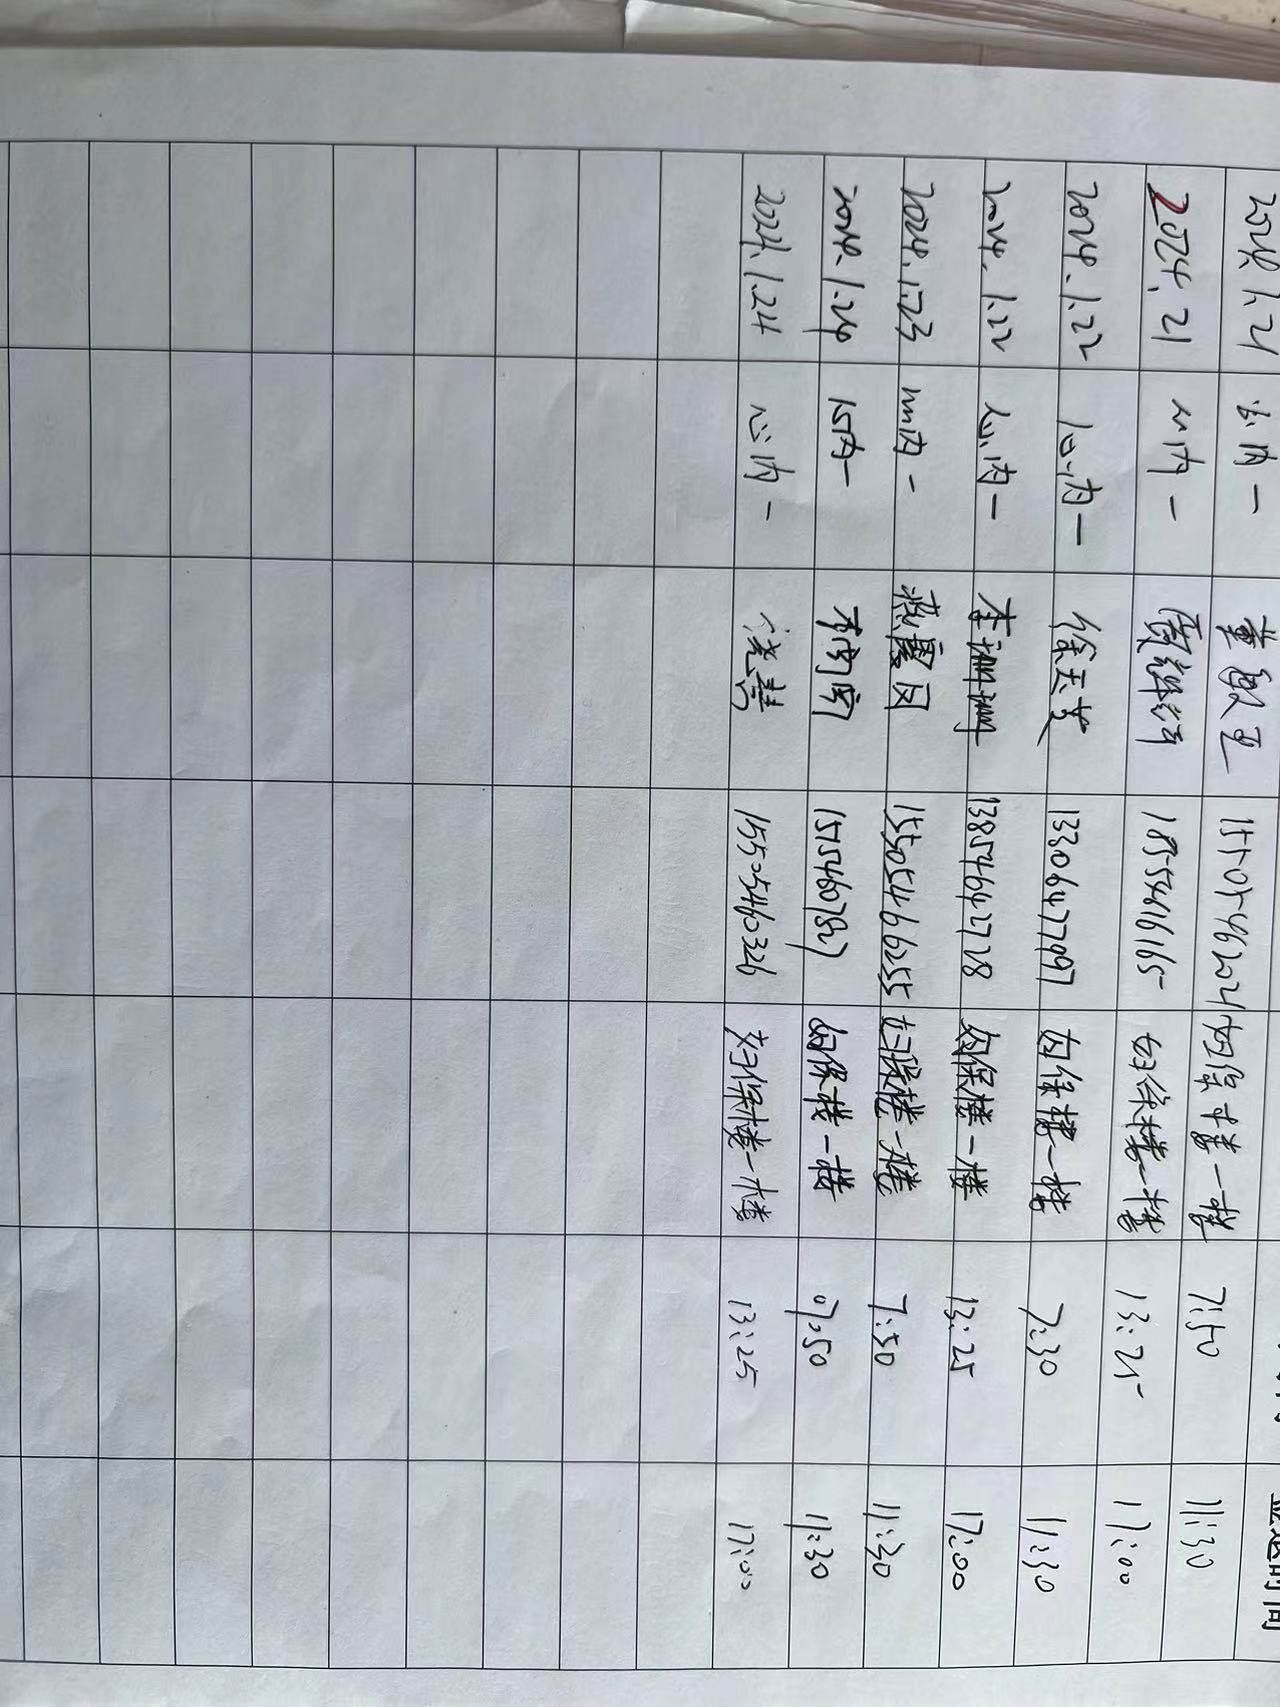 2024.1.21 心内一 董敏卫 15505462021 妇保楼一楼 7:50 11:30
2024.21 心内一 18554616165 妇保楼一楼 13:25 17:00
2024.1.22 心内一 徐天芝 13306477997 妇保楼一楼 7:30 11:30
2024.1.22 心内一 李珊珊 13854642728 妇保楼一楼 13:25 17:00
2024.1.23 心内一 15505466255 妇保楼一楼 7:50 11:30
2024.1.24 心内一 妇保楼一楼 07:50 11:30
2024.1.24 心内一 15505460326 妇保楼一楼 13:25 17:00